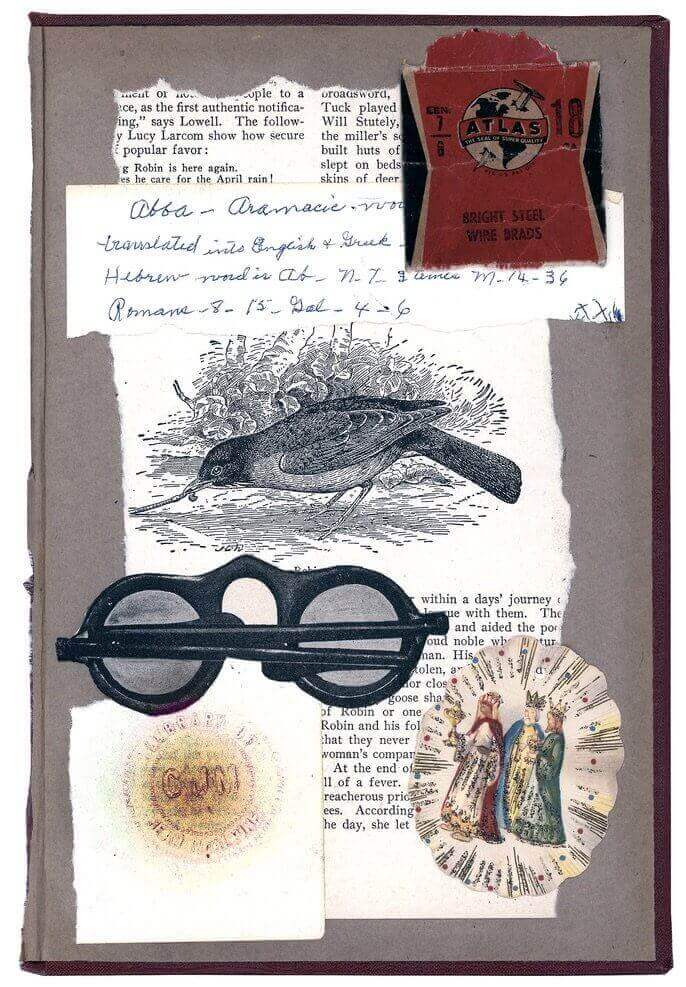 ople to a
ce, as the first authentic notifica-
ing," says Lowell. The follow-
y Lucy Larcom show how secure
popular favor:
g Robin is here again.
es he care for the April rain!
broadsword,
Tuck played
Will Stutely,
the miller's s
built huts of
slept on beds
skins of deer
CEN.
7
8
ATLAS
THE SEAL OF SUPER QUALITY
18
BRIGHT STEEL
WIRE BRADS
Abba - Aramacic - wor
translated into English & Greek -
Hebrew word is Ab - N. T. 3 times M - 14 - 36
Romans - 8 - 15 - Gal - 4 - 6
within a days' journey
ue with them. The
and aided the poo
oud noble wh
man. His
tolen, a
nor clos
goose sha
of Robin or one
Robin and his fol
that they never
woman's compan
At the end of
ll of a fever.
reacherous prio
ees. According
he day, she let
LIBRARY OF
CJM